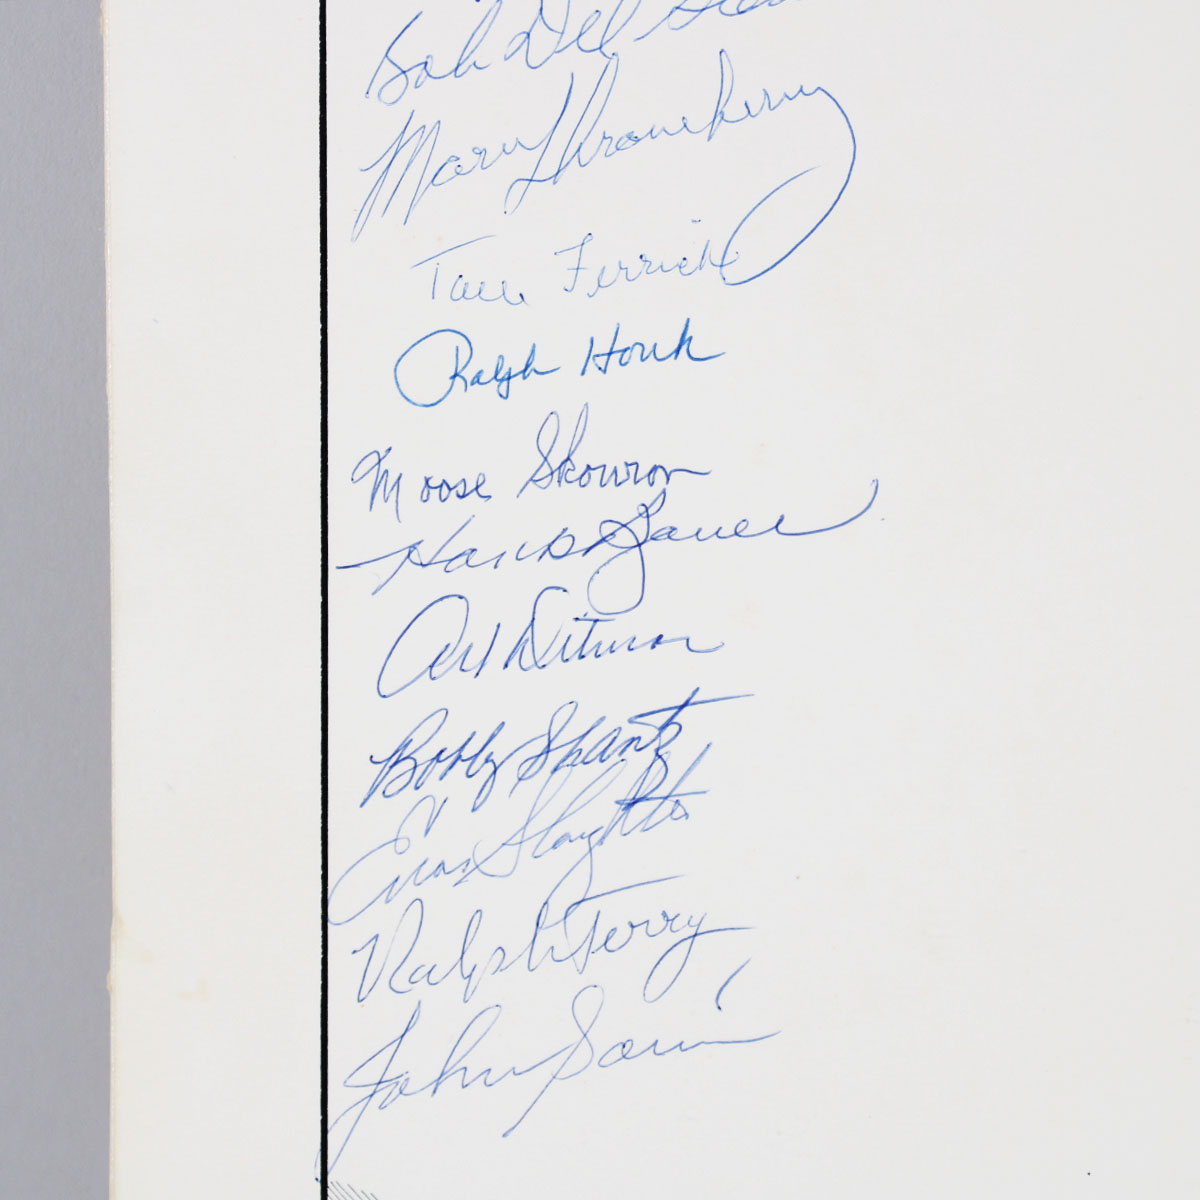 Bob Del
Marv Throneberry
Tom Ferrick
Ralph Houk
Moose Skowron
Hank Bauer
Art Ditmar
Bobby Shantz
Enos Slaughter
Ralph Terry
John Sain